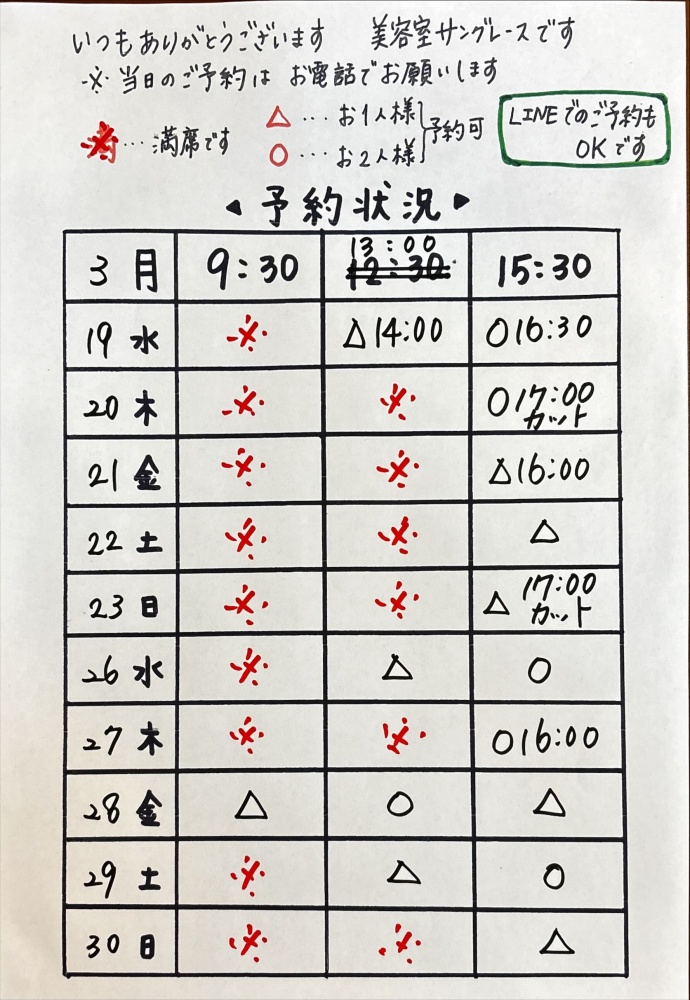 いつもありがとうございます 美容室サングレースです
※当日のご予約は お電話でお願いします
※…満席です
△…お1人様
○…お2人様
予約可
LINEでのご予約も
OKです
◀予約状況▶
3月 9:30 13:00 12:30 15:30
19 水 ※ △14:00 ○16:30
20 木 ※ ※ ○17:00 カット
21 金 ※ ※ △16:00
22 土 ※ ※ △
23 日 ※ ※ △17:00 カット
26 水 ※ △ ○
27 木 ※ ※ ○16:00
28 金 △ ○ △
29 土 ※ △ ○
30 日 ※ ※ △